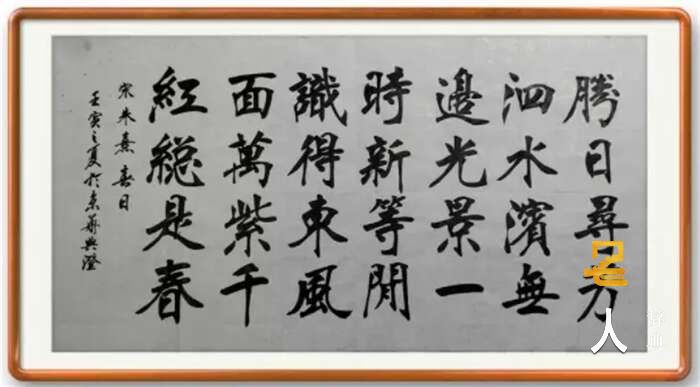 勝日尋芳
泗水濱無
邊光景一
時新等閒
識得東風
面萬紫千
紅総是春
宋朱熹春日
壬寅之夏於京華
名人